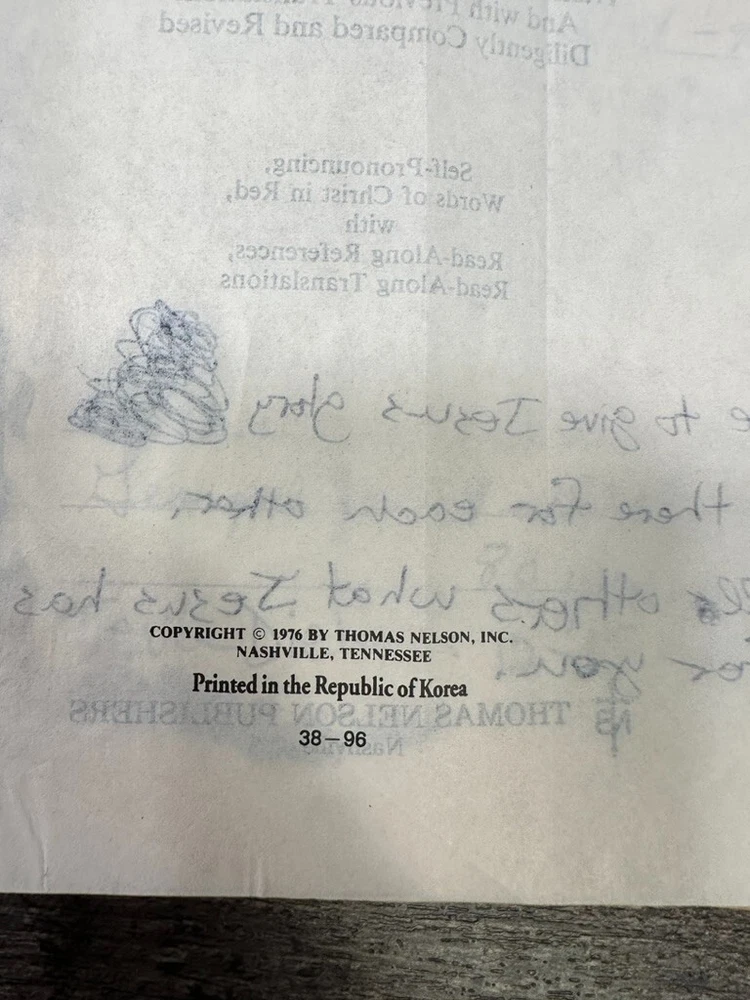 And with Previous
Diligently Compared and Revised
Self-Pronouncing,
Words of Christ in Red,
with
Read-Along References,
Read-Along Translations
to give Jesus glory
there for each other,
others what Jesus has
for you!
COPYRIGHT © 1976 BY THOMAS NELSON, INC.
NASHVILLE, TENNESSEE
Printed in the Republic of Korea
THOMAS NELSON PUBLISHERS
38–96
Nashville